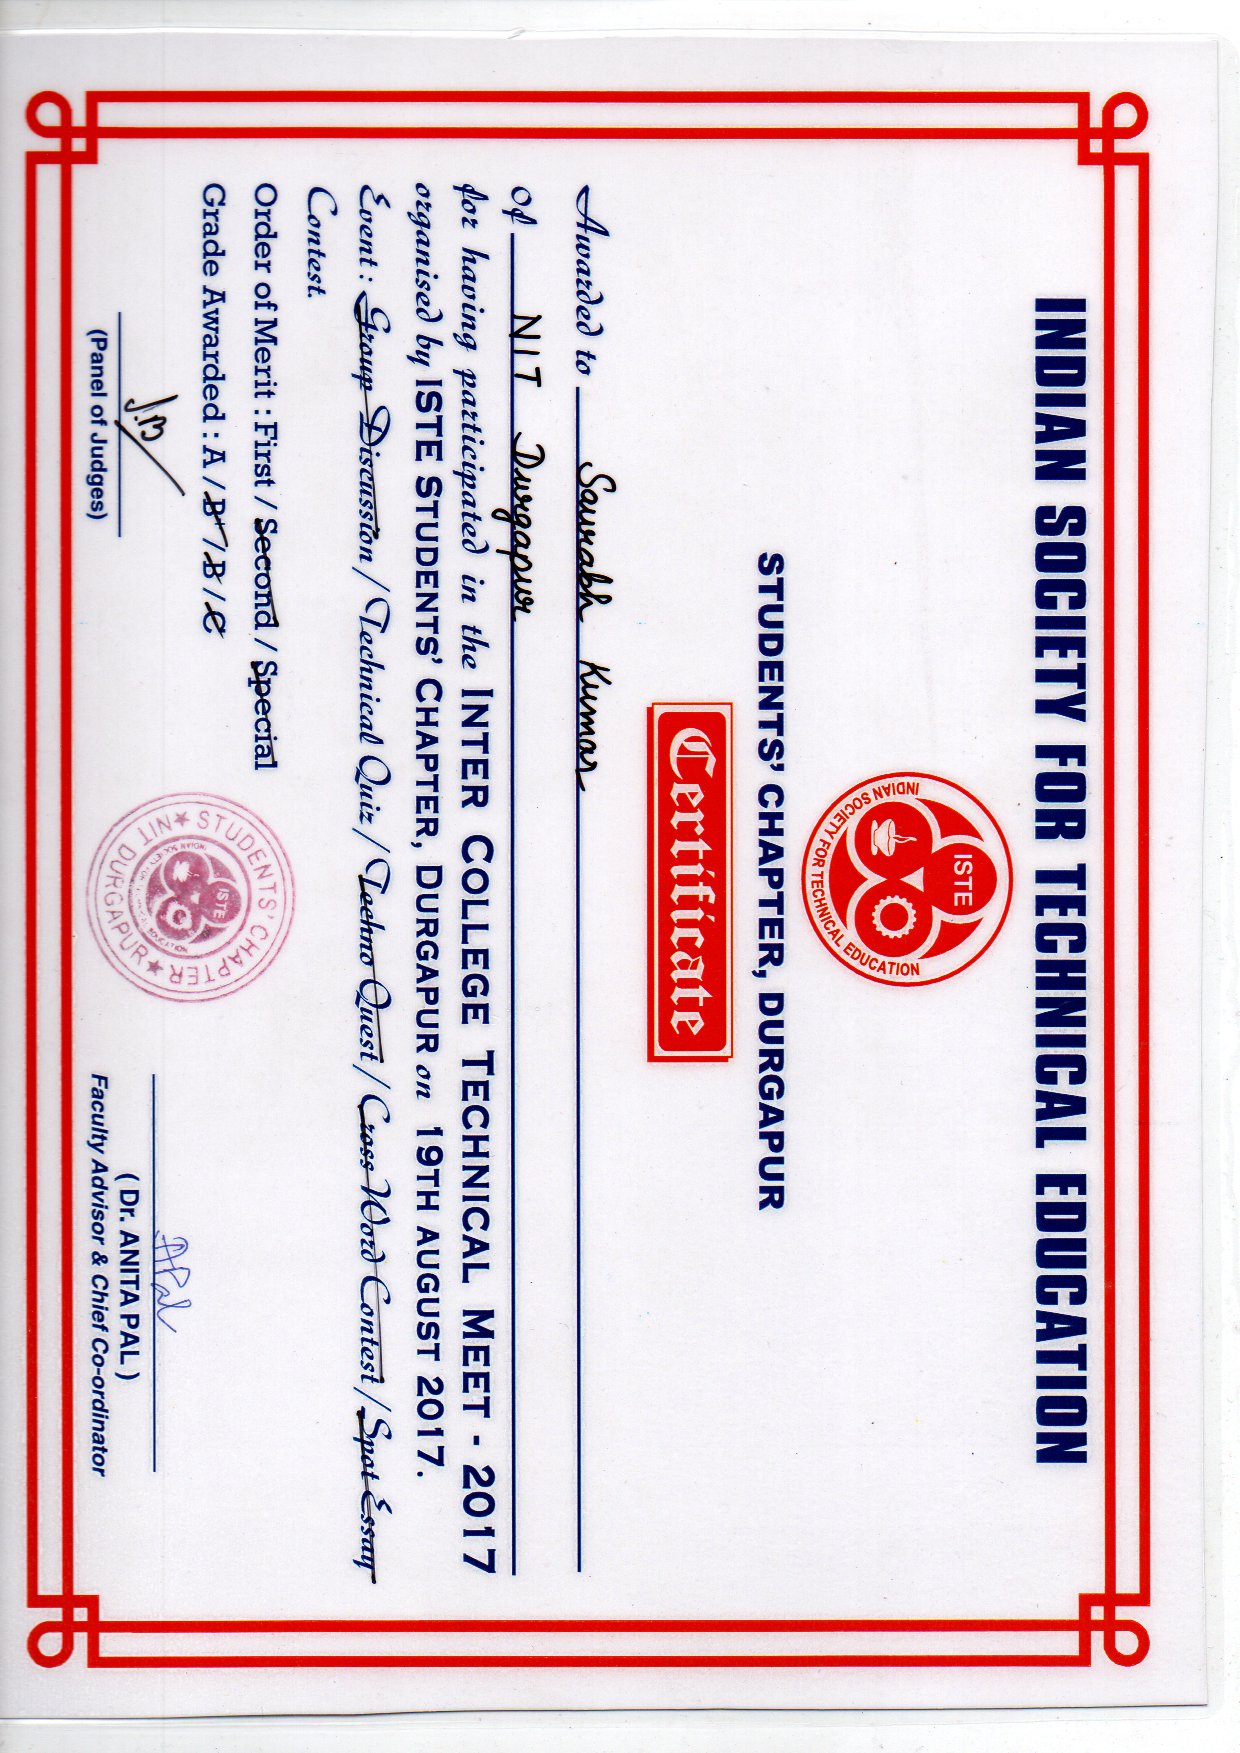 INDIAN SOCIETY FOR TECHNICAL EDUCATION
ISTE
INDIAN SOCIETY FOR TECHNICAL EDUCATION
STUDENTS' CHAPTER, DURGAPUR
Certificate
Awarded to Saurabh Kumar
of NIT Durgapur
for having participated in the INTER COLLEGE TECHNICAL MEET - 2017
organised by ISTE STUDENTS' CHAPTER, DURGAPUR on 19TH AUGUST 2017.
Event : Group Discussion / Technical Quiz / Techno Quest / Cross Word Contest / Spot Essay
Contest.
Order of Merit : First / Second / Special
Grade Awarded : A / B+ / B / C
J.B
(Panel of Judges)
STUDENTS' CHAPTER
NIT DURGAPUR
ISTE
INDIAN SOCIETY FOR TECHNICAL EDUCATION
APal
( Dr. ANITA PAL )
Faculty Advisor & Chief Co-ordinator